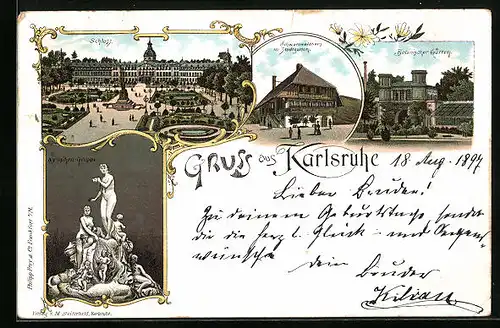 Schloss.
Schwarzwaldhaus
im Stadtgarten.
Botanischer Garten.
Gruss aus Karlsruhe
18 Aug. 1897
Lieber Bruder!
Zu deinem Geburtstage sendet
dir die herzl. Glück- und Segens-
wünsche dein
Bruder
Kilian
Philipp Frey & Co Frankfurt a/M.
Karlsruhe.